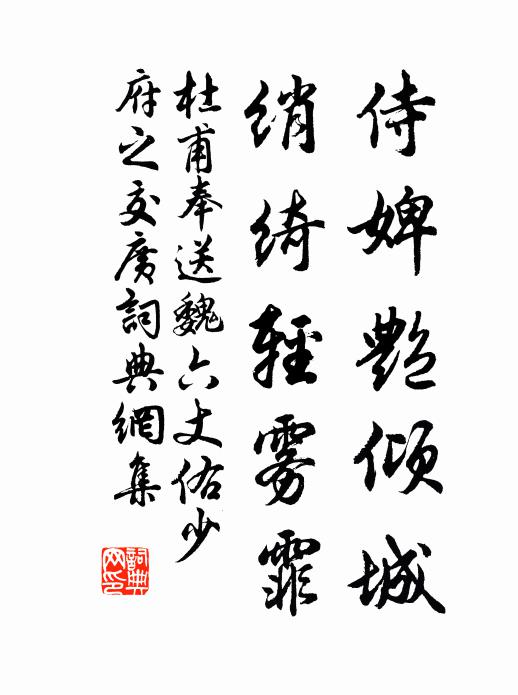 侍婢艷傾城
綃綺輕雾霏
杜甫奉送魏六丈佑少
府之交廣詞典網集
詞典网印